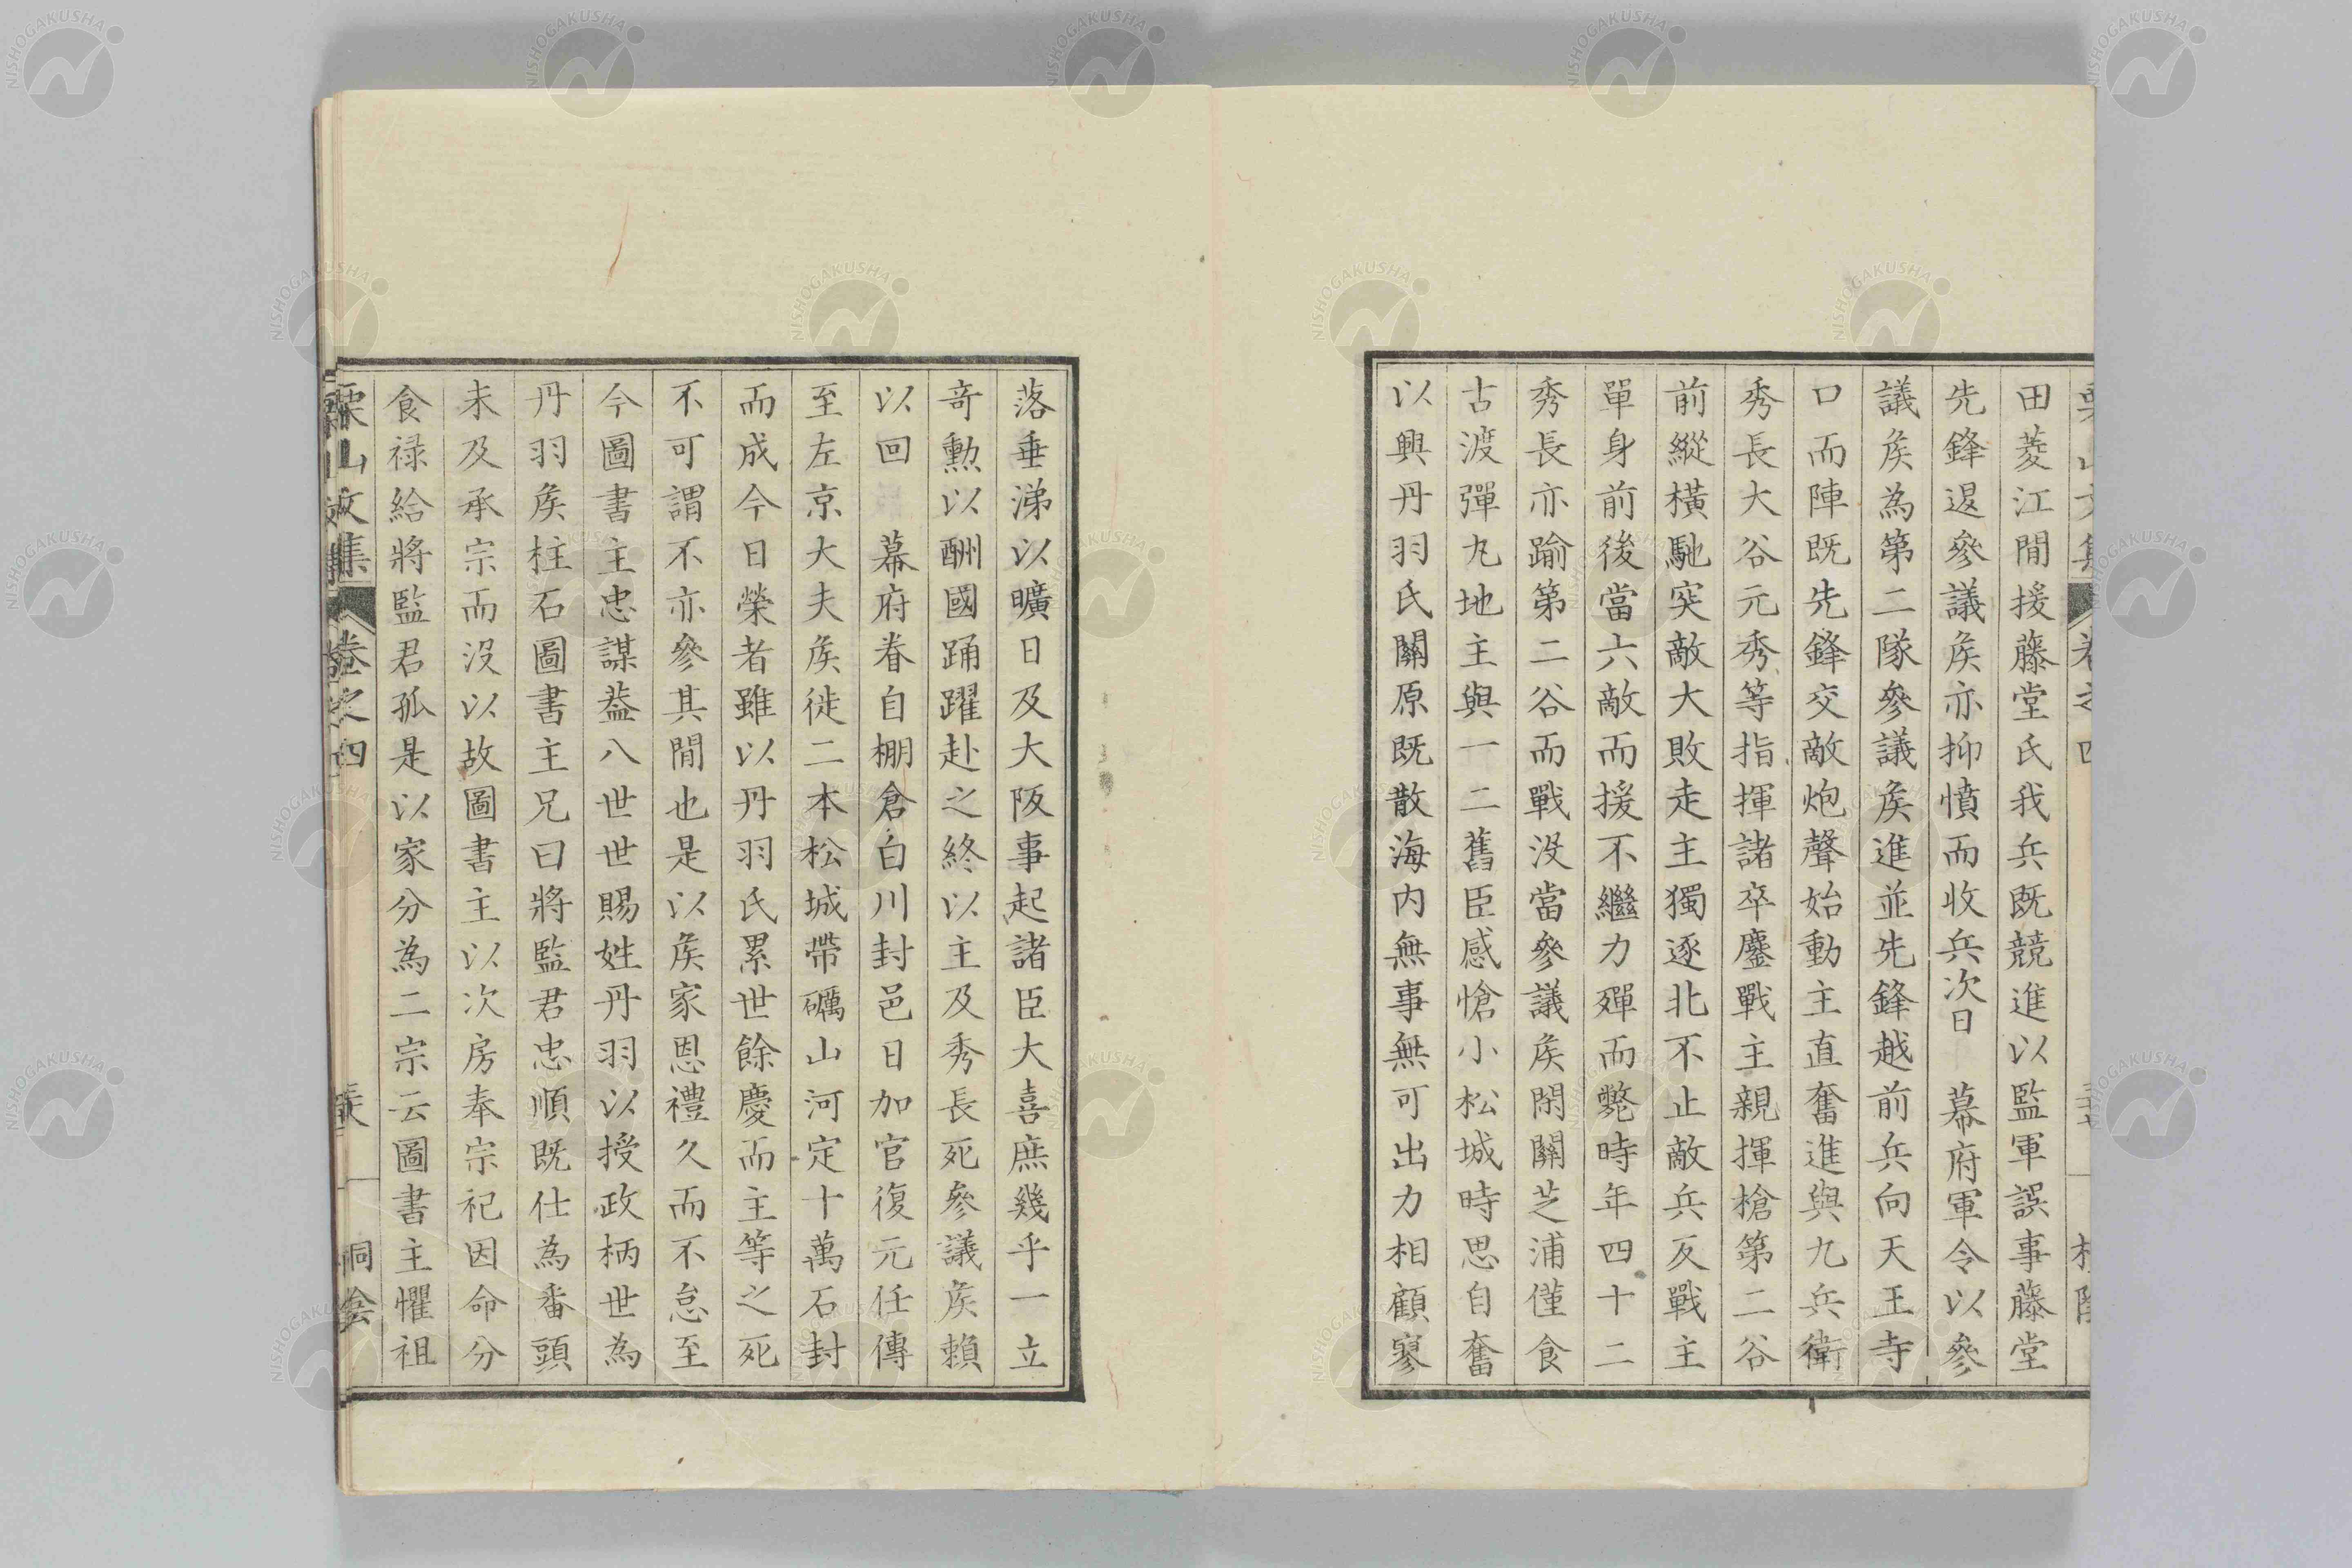 田菱江閒援藤堂氏我兵既競進以監軍誤事藤堂
先鋒退參議矦亦抑憤而收兵次日 幕府軍令以參
議矦為第二隊參議矦進並先鋒越前兵向天王寺
口而陣既先鋒交敵炮聲始動主直奮進與九兵衛
秀長大谷元秀等指揮諸卒鏖戰主親揮槍第二谷
前縱橫馳突敵大敗走主獨逐北不止敵兵反戰主
單身前後當六敵而援不繼力殫而斃時年四十二
秀長亦踰第二谷而戰沒當參議矦閑關芝浦僅食
古渡彈丸地主與一二舊臣感愴小松城時思自奮
以興丹羽氏關原既散海內無事無可出力相顧寥
落垂涕以曠日及大阪事起諸臣大喜庶幾乎一立
奇勳以酬國踊躍赴之終以主及秀長死參議矦賴
以回 幕府眷自棚倉白川封邑日加官復元任傳
至左京大夫矦徙二本松城帶礪山河定十萬石封
而成今日榮者雖以丹羽氏累世餘慶而主等之死
不可謂不亦參其閒也是以矦家恩禮久而不怠至
今圖書主忠謀葢八世世賜姓丹羽以授政柄世為
丹羽矦柱石圖書主兄曰將監君忠順既仕為番頭
未及承宗而沒以故圖書主以次房奉宗祀因命分
食祿給將監君孤是以家分為二宗云圖書主懼祖
栗山文集 卷之四